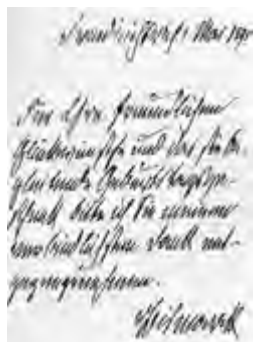 Friedrichsruh 1 Mai 189
Für Ihre freundlichen
Glückwünsche und das sie be-
gleitende Geburtstagsge-
schenk bitte ich Sie meinen
verbindlichsten Dank ent-
gegenzunehmen.
vBismarck